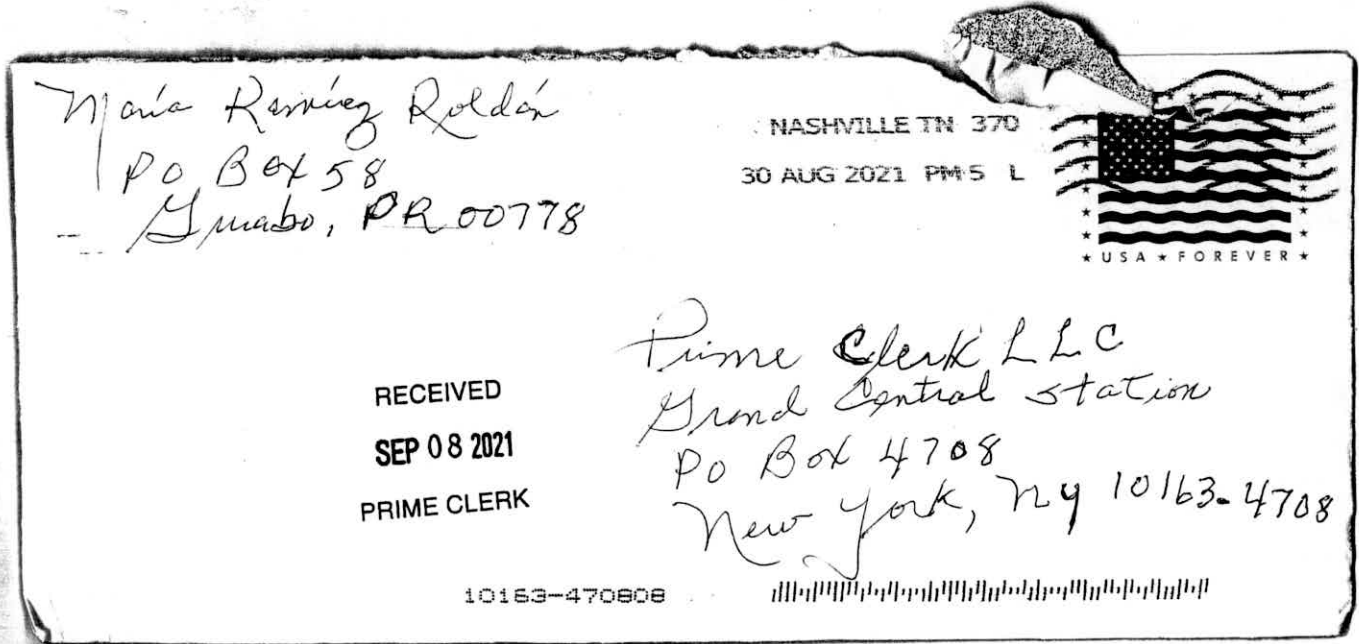 María Ramírez Roldán
PO BOX 58
Gurabo, PR 00778
NASHVILLE TN 370
30 AUG 2021 PM 5 L
★ USA ★ FOREVER ★
Prime Clerk LLC
Grand Central Station
PO Box 4708
New York, NY 10163-4708
RECEIVED
SEP 08 2021
PRIME CLERK
10163-470808